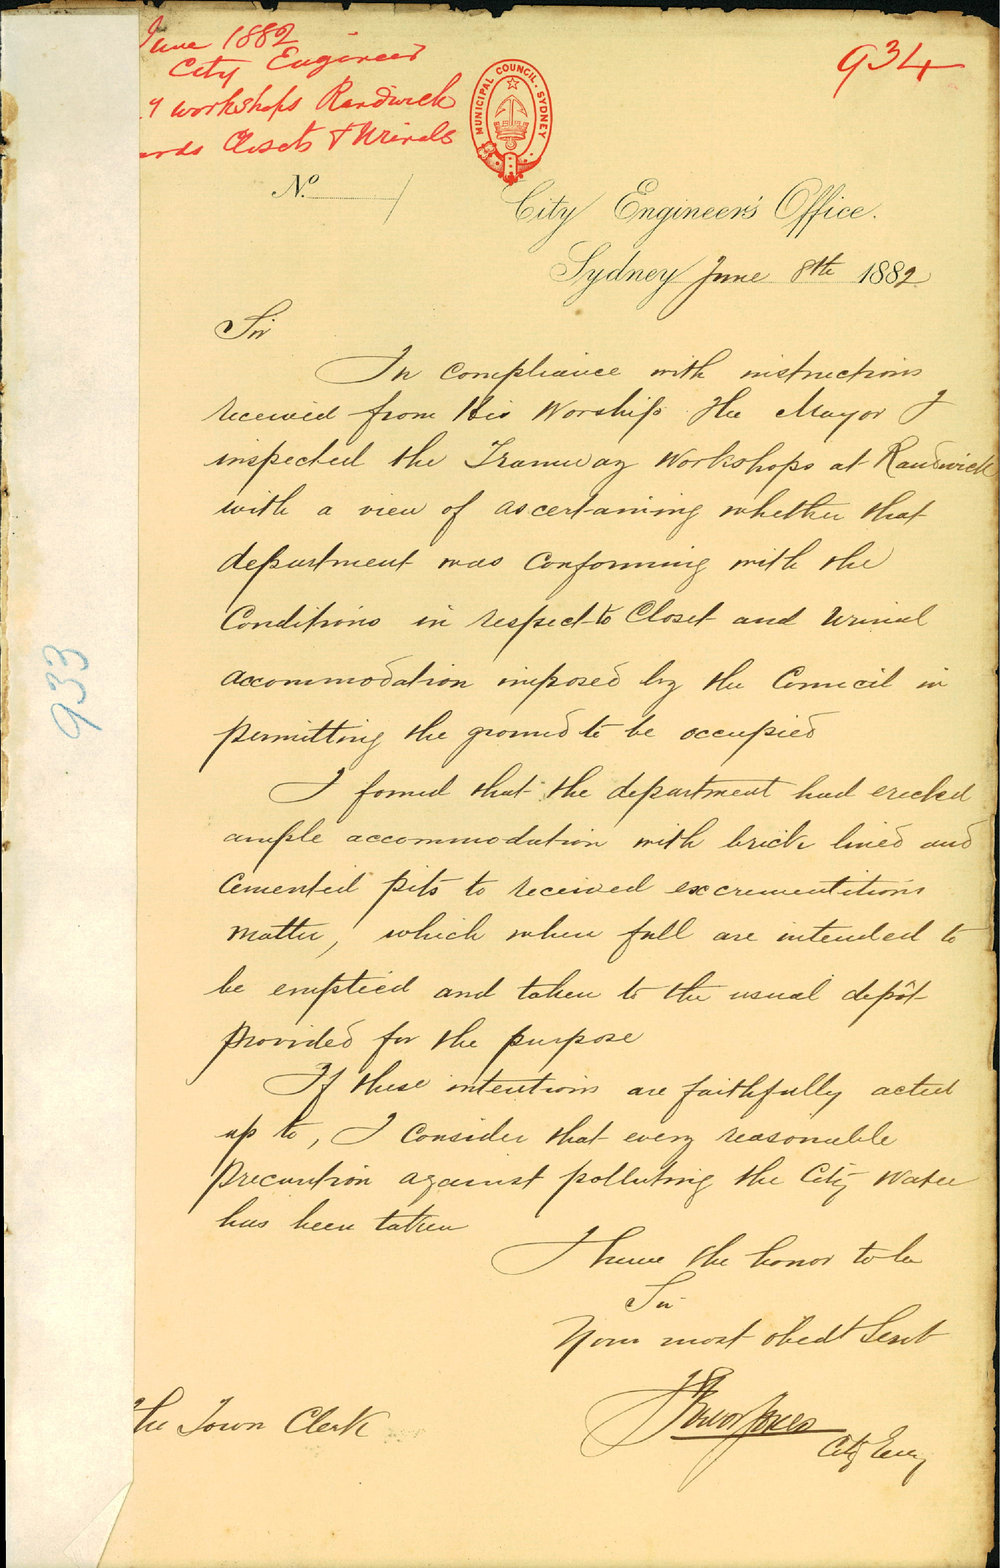 June 1882
City Engineer
y workshops Randwick
ards Closets & Urinals
934
MUNICIPAL COUNCIL. SYDNEY
No.
City Engineer's Office.
Sydney June 8th 1882
933
Sir
In compliance with instructions
received from His Worship the Mayor I
inspected the Tramway Workshops at Randwick
with a view of ascertaining whether that
department was conforming with the
Conditions in respect to Closet and Urinal
accommodation imposed by the Council in
permitting the ground to be occupied
I found that the department had erected
ample accommodation with brick lined and
Cemented pits to received excrementitious
matter, which when full are intended to
be emptied and taken to the usual depôt
provided for the purpose
If these intentions are faithfully acted
up to, I consider that every reasonable
precaution against polluting the City Water
has been taken
I have the honor to be
Sir
Your most obedt Servt
Trevor Jones
City Engr
the Town Clerk